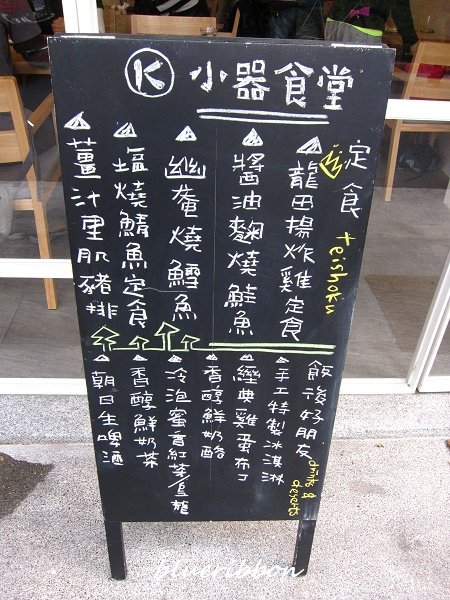 K 小器食堂
定食 teishoku
龍田揚炸雞定食
醬油麴燒鮭魚
幽庵燒鱈魚
塩燒鯖魚定食
薑汁里肌豬排
飯後好朋友 drinks & deserts
手工特製冰淇淋
經典雞蛋布丁
香醇鮮奶酪
冷泡蜜香紅茶/烏龍
香醇鮮奶茶
朝日生啤酒
blueribbon